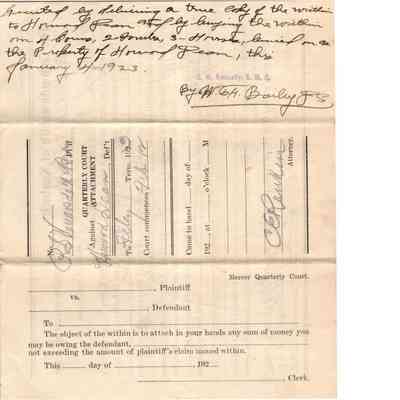 Executed by delivering a true copy of the within
to Howard Dean and by levying the within
on 5 Cows, 2 3 Horses, levied on as
the Property of Howard Dean, this
January 4, 1923.
By W. H. Bailey D S
No.
Pl'ff
QUARTERLY COURT
ATTACHMENT
Against
Howard Dean Def't
To Feby Term, 192 3
Court commences
Came to hand day of
192 , at o'clock M
Attorney.
Mercer Quarterly Court.
, Plaintiff
vs.
, Defendant
To
The object of the within is to attach in your hands any sum of money you
may be owing the defendant,
not exceeding the amount of plaintiff's claim named within.
This day of , 192
, Clerk.